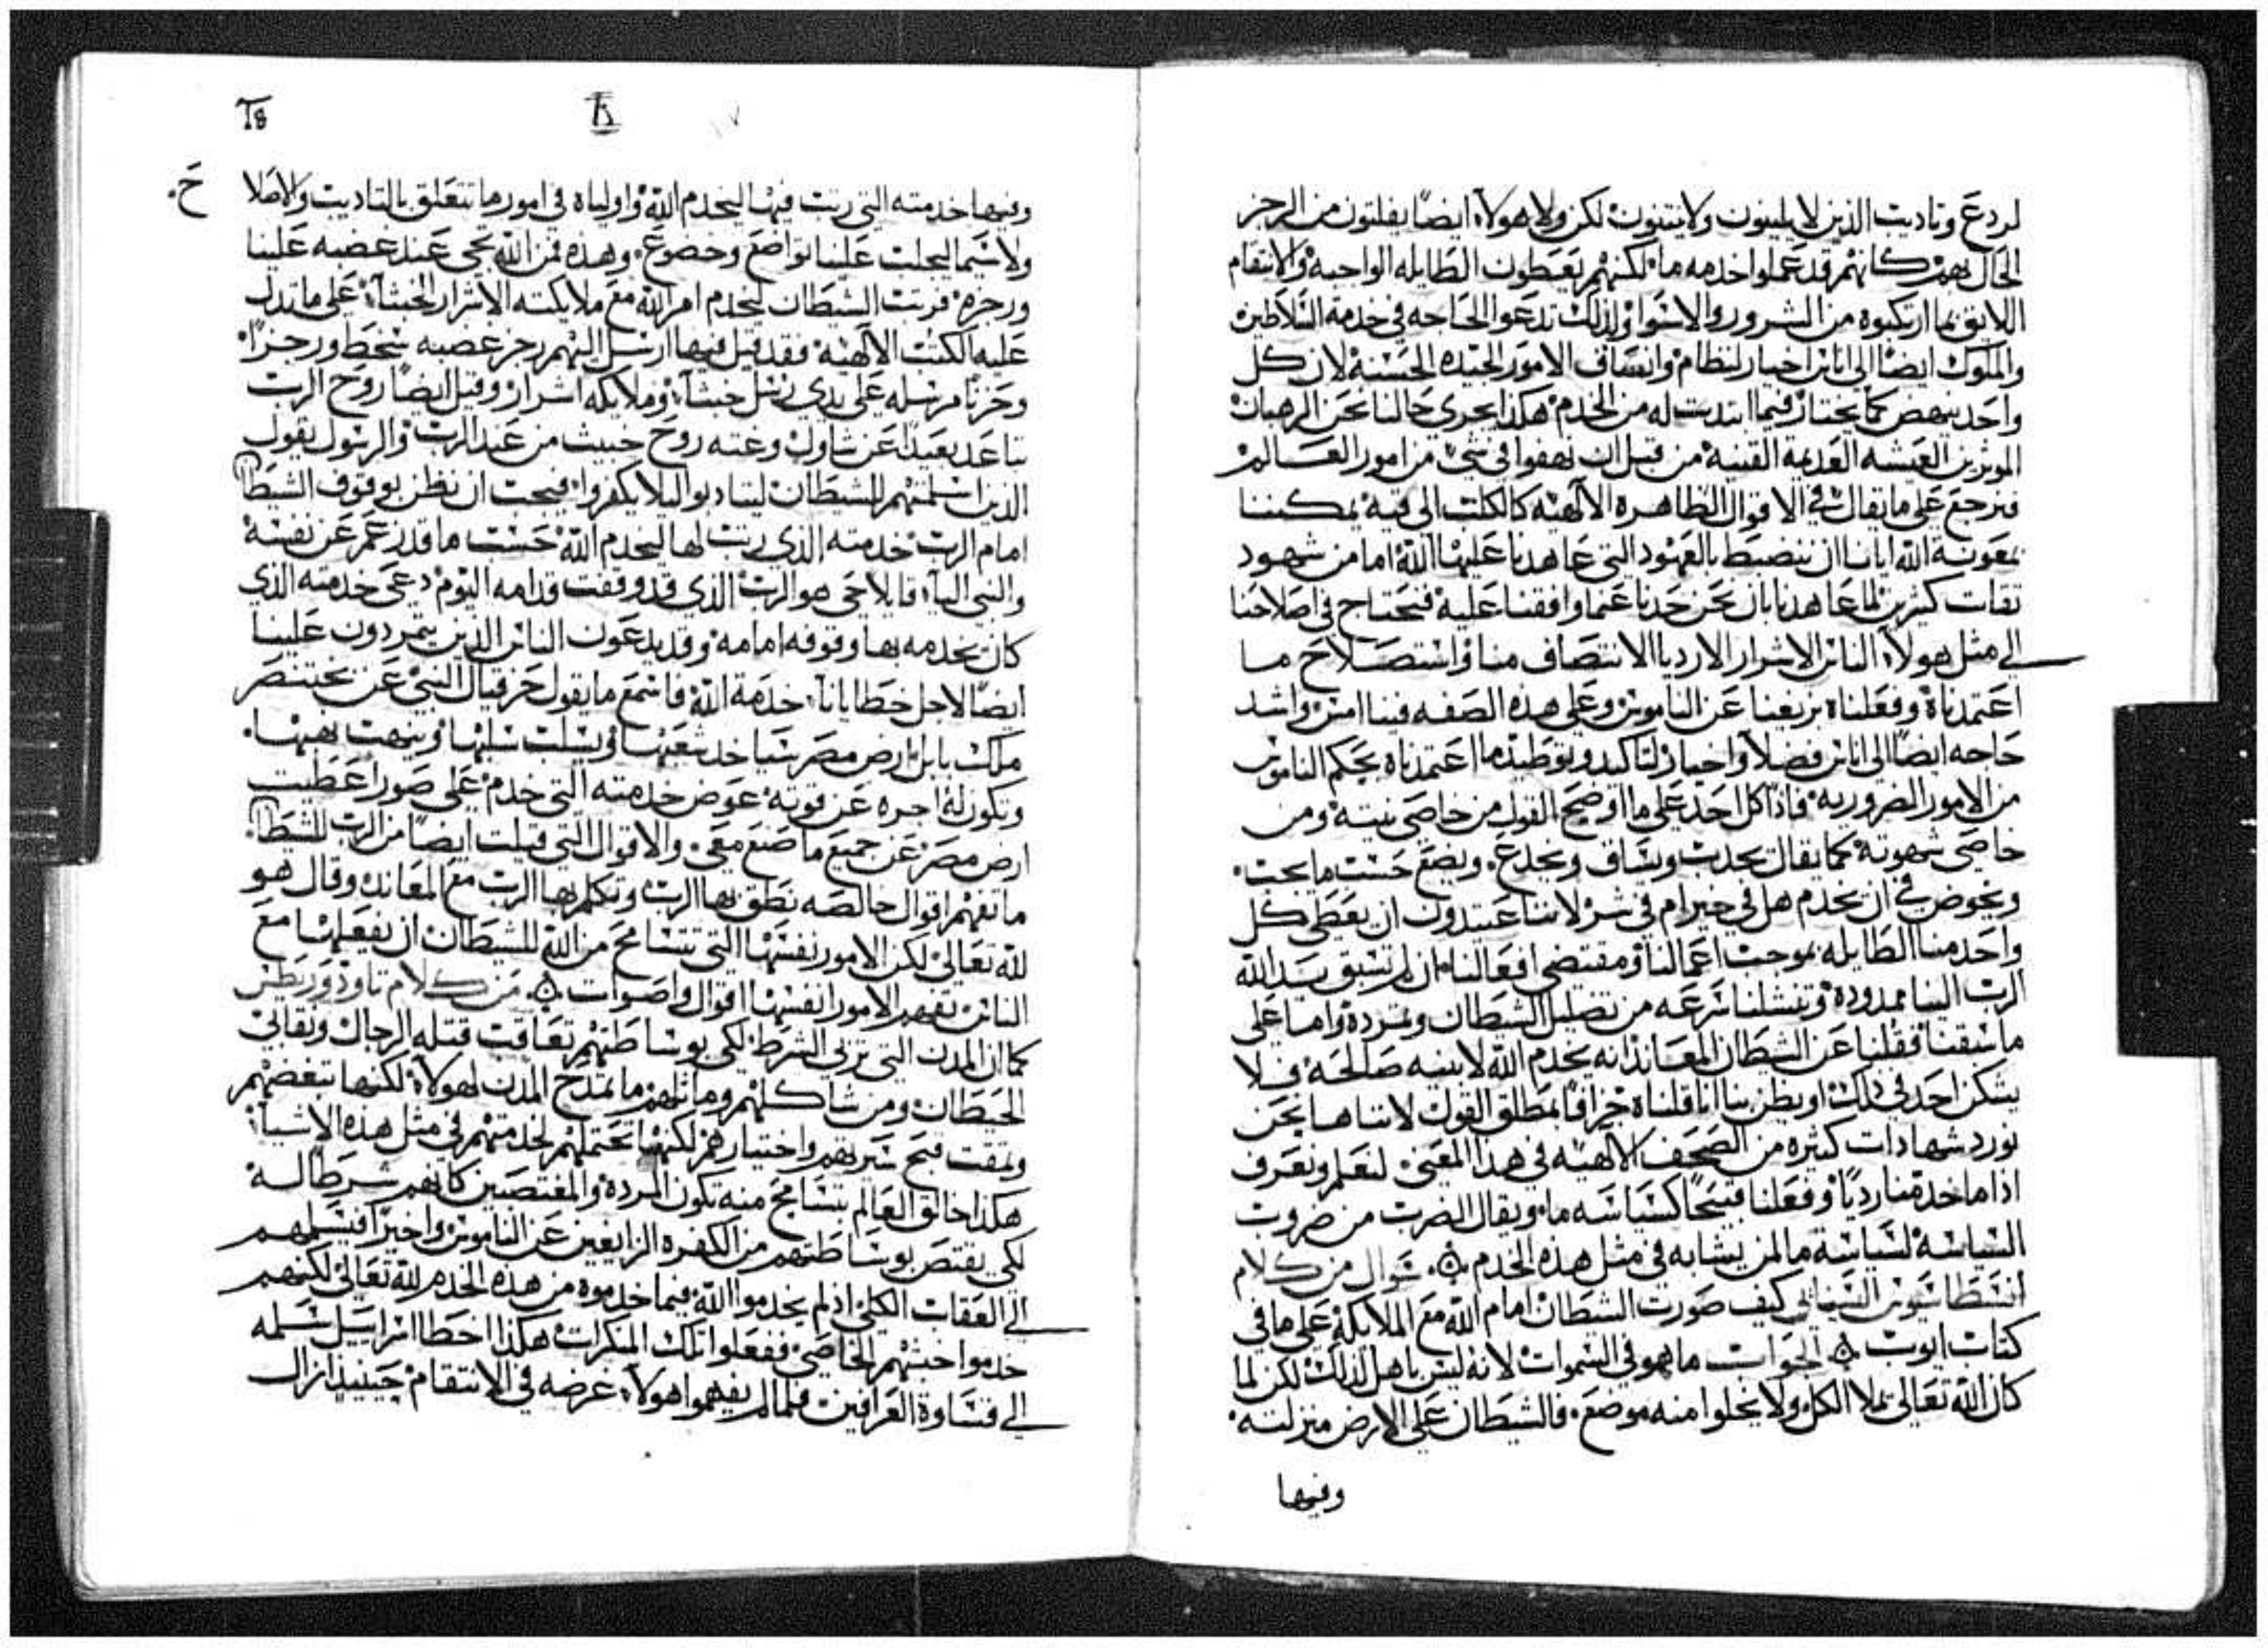 لردع وتاديب الذين لا يلينون ولا ينتنون لكن ولا هولاء ايضًا يفلتون من الرجز
الحال بهم كانهم قد عملوا خدمه ما لكنهم يعطون الطايله الواجبة والانتقام
اللايق بما ارتكبوه من الشرور والاسوا ولذلك تدعوا الحاجه في خدمة السلاطين
والملوك ايضًا الى اناس اخيار لنظام وانسياق الامور الجيده الحسنة لان كل
واحد ينهض كما يختار فيما انتدب له من الخدم هكذا يجرى حالنا نحن الرهبان
الموثرين العيشه العديمة القنية من قبل ان نهفوا في شي من امور العالم
فنرجع على ما يقال في الاقوال الظاهره الالهية كالكلب الى قيه يمكننا
بمعونة الله ايانا ان ننضبط بالعهود التي عاهدنا عليها الله امام شهود
ثقات كثيرين لما عاهدنا بان نحن حدنا عما وافقنا عليه فنحتاج في اصلاحنا
الى مثل هولاء الناس الاشرار الارديا الانتصاف منا واستصلاح ما
اعتمدناه وفعلناه بزيغنا عن الناموس وعلى هذه الصفه فبنا امس واشد
حاجه ايضًا الى اناس فضلا واخيار لتاكيد وتوطيد ما اعتمدناه بحكم الناموس
من الامور الضرورية فاذًا كل احد على ما اوضح القول من خاصي نيته ومن
خاصي شهوته كما يقال يجدب ويساق ويخدع ويضع حسب ما يحب
ويخوض في ان يخدم هل في خير ام في شر لاننا عتيدون ان يعطى كل
واحد منا الطايله بموجب اعمالنا ومقتضى افعالنا ان لم تسبق يد الله
الرب الينا ممدودة وتنشلنا سرعه من تضليل الشيطان وتمرده واما على
ما سبقنا فقلنا عن الشيطان المعاند انه يخدم الله لا بنيه صالحه فلا
يشكن احد في ذلك او يظن بنا انا قلناه جزافًا بمطلق القول لاننا ها نحن
نورد شهادات كثيره من الصحف الالهيه في هذا المعنى لنعلم ونعرف
اذا ما خدمنا رديًا وفعلنا قبيحًا كسياسه ما ويقال الضرب من ضروب
السياسة لسياسة ما لمن يشابه في مثل هذه الخدم ۞ سوال من كلام
انسطاسيوس السينايي كيف صورت الشيطان امام الله مع الملايكة على ما في
كتاب ايوب ۞ الجواب ما هو في السموات لانه ليس باهل لذلك لكن لما
كان الله تعالى يملا الكل ولا يخلوا منه موضع فالشيطان على الارض منزلته
وفيها
وفيها خدمته التي رتب فيها ليخدم الله واولياه في امور ما تتعلق بالتاديب والاصلا ح
ولا سيما ليجلب علينا تواضع وخضوع وهذه فمن الله تجي عند غضبه علينا
ورجزه فرتب الشيطان ليخدم امر الله مع ملايكته الاشرار الخبثاء على ما تدل
عليه الكتب الالهية فقد قيل فيها ارسل اليهم رجز غضبه سخط ورجزًا
وحزنًا مرسله على يدي رسل خبثاء وملايكه اشرار وقيل ايضًا روح الرب
تباعد بعيدًا عن شاول وعنته روح خبيث من عند الرب والرسول يقول
الذين اسلمتهم للشيطان ليتادبوا ليلا يكفروا فيجب ان نظن بوقوف الشيطان
امام الرب خدمته الذي رتب لها ليخدم الله حسب ما قدر عمر عن نفسه
والنبي اليا قايلا حى هو الرب الذي قد وقفت قدامه اليوم دعى خدمته الذي
كان يخدمه بها وقوفه امامه وقد يدعون الناس الذين يتمردون علينا
ايضًا لاجل خطايانا خدمة الله فاسمع ما يقول حزقيال النبي عن بختنصر
ملك بابل ارض مصر سياخد شعبها ويسلب سلبها وينهب نهبها
وتكون له اجره عن قوته عوض خدمته التي خدم على صور اعطيت
ارض مصر عن جميع ما صنع معي والاقوال التي قيلت ايضًا من الرب للشيطان
ما تفهم اقوال خالصه نطق بها الرب وتكلم بها الرب مع المعاند وقال هو
لله تعالى لكن الامور نفسها التي تتسامح من الله للشيطان ان يفعلها مع
الناس تفهم الامور انفسها اقوال واصوات ۞ من كلام تاودوريطس
كما ان المدن التي تربي الشرط لكي بوساطتهم تعاقب قتله الرجال ونقابي
الحيطان ومن شاكلهم وماثلهم ما تمدح المدن لهولاء لكنها تبغضهم
وتمقت قبح سيرتهم واختيارهم لكنها تحتملهم لخدمتهم في مثل هذه الاشيا
هكذا خالق العالم يتسامح منه تكون المرده والمغتصبين كانهم شرط اله
لكي يقتص بوساطتهم من الكفره الزايغين عن الناموس واخيرًا فيسلمهم
الى العقاب الكلي اذ لم يخدموا الله فيما خدموه من هذه الخدم لله تعالى لكنهم
خدموا خبثهم الخاصي ففعلوا تلك المنكرات هكذا اخطا اسراييل سلمه
الى قساوة العراقين فلما لم يفهموا هولاء غرضه في الانتقام حينيذ ازال